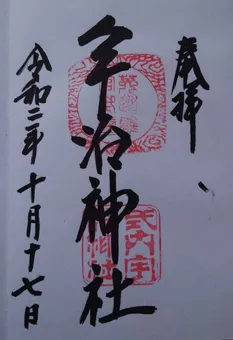 奉拝
宇治神社
式内宇
令和二年十月十七日